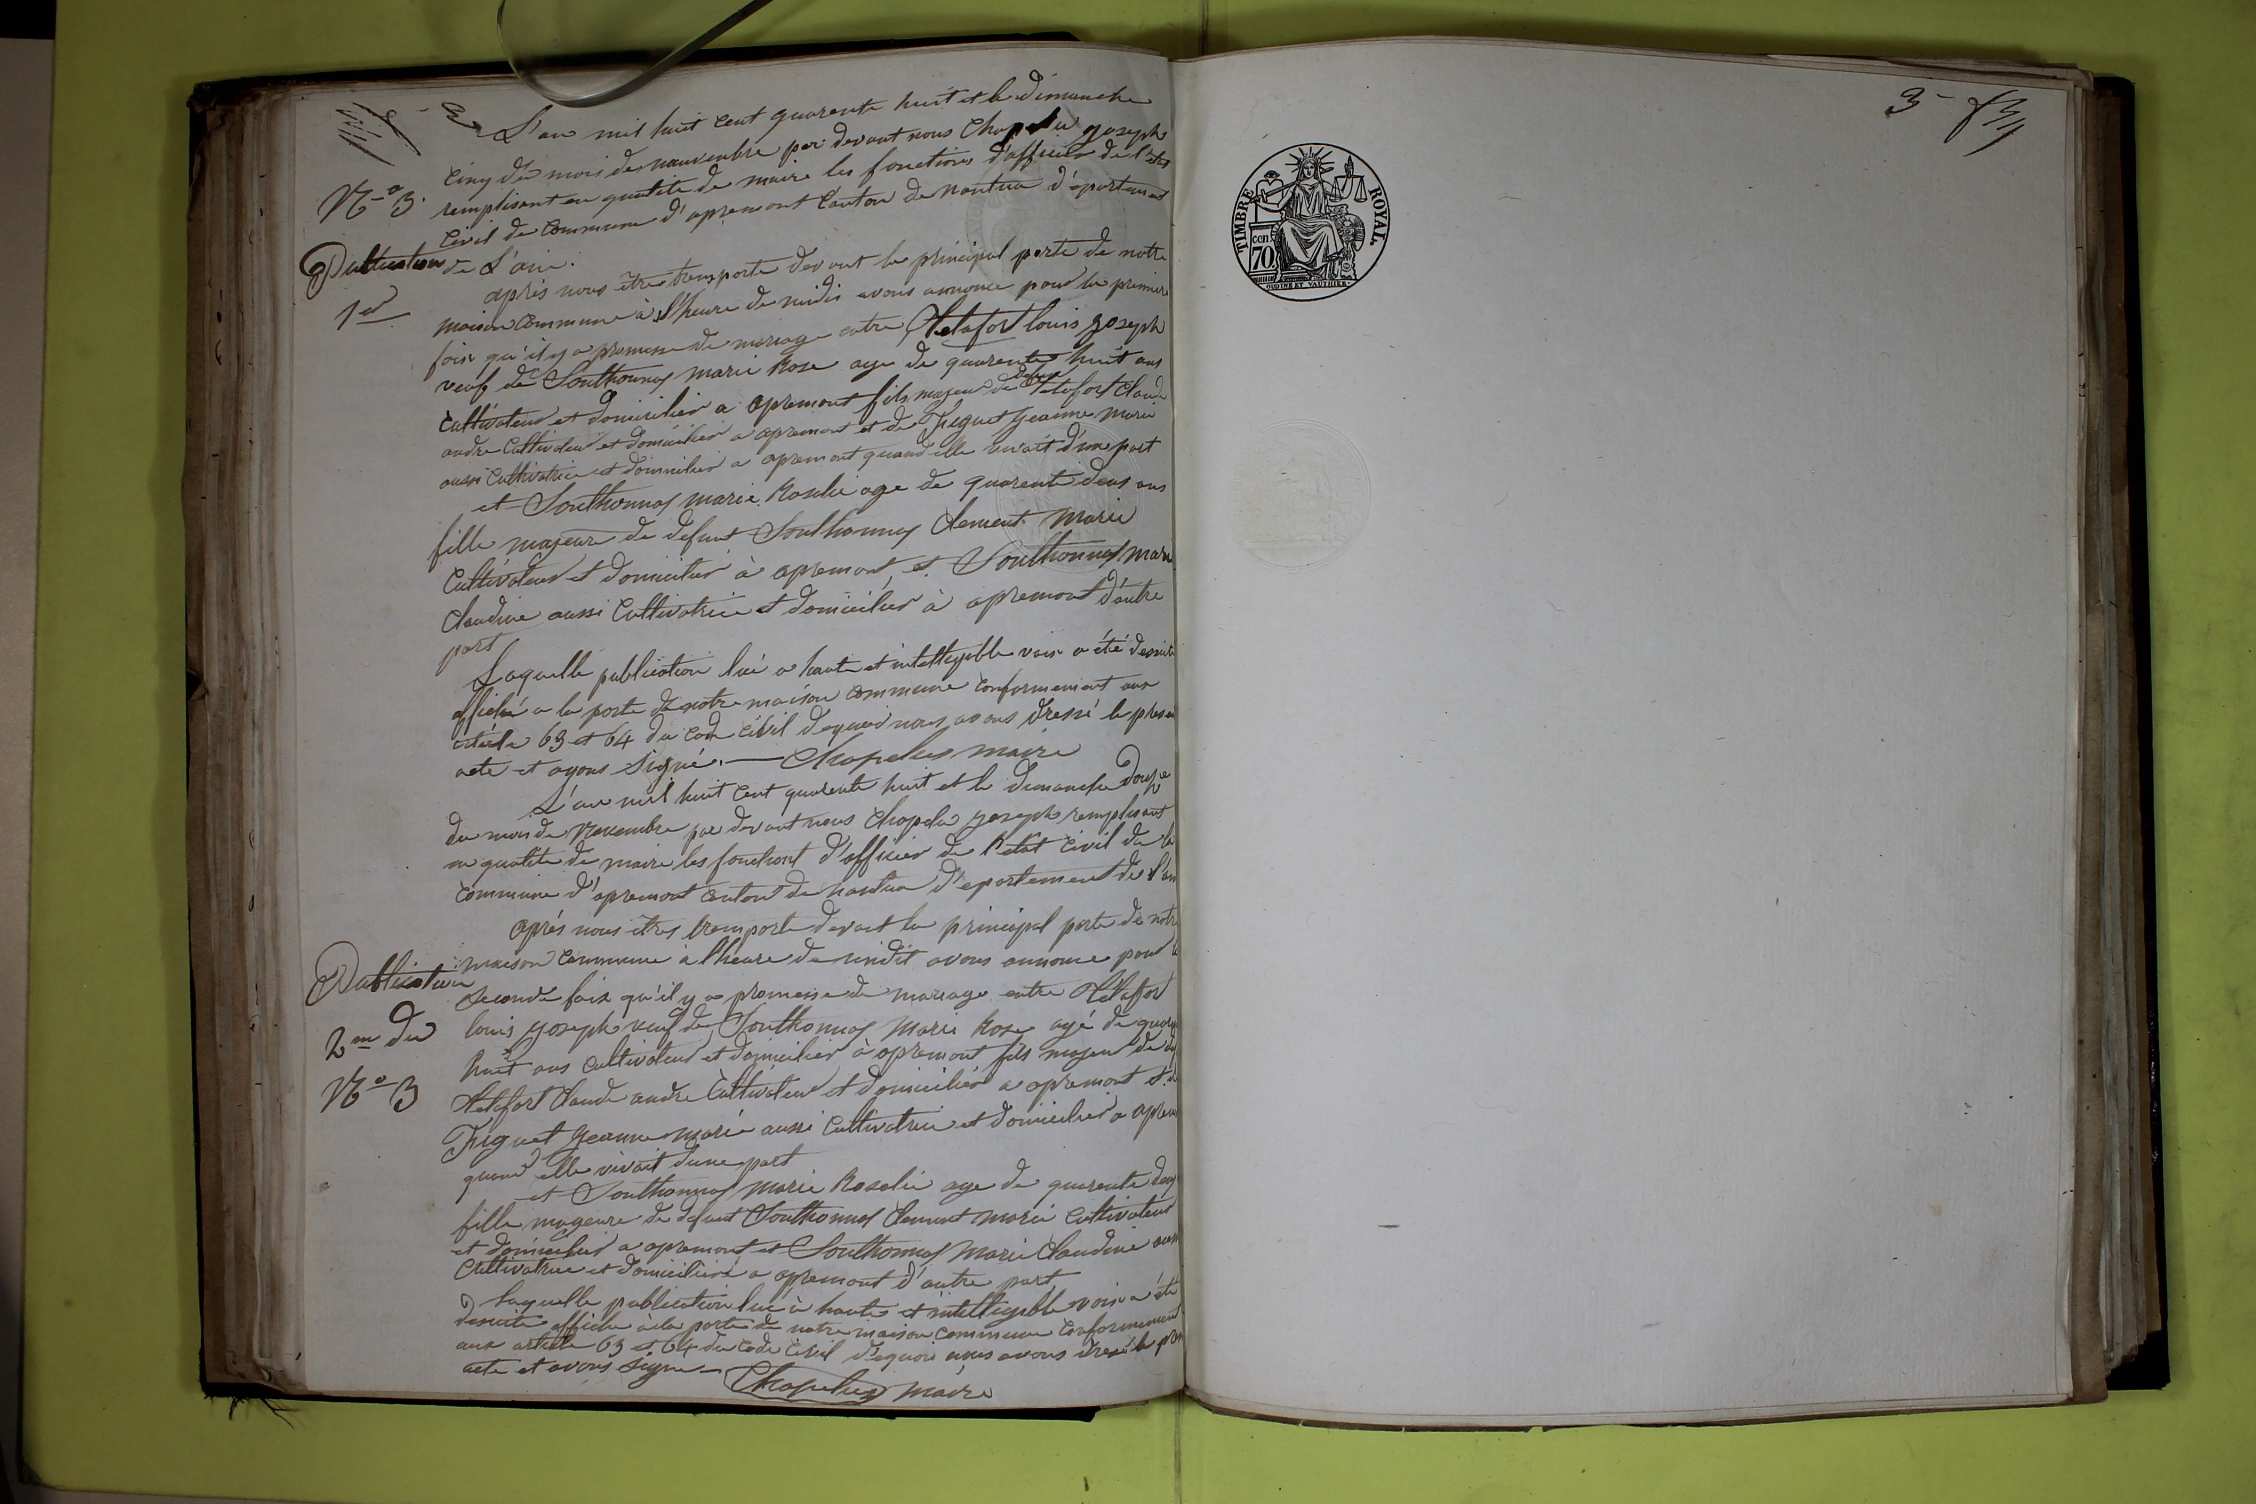 3
L'an mil huit cent quarente huit et le dimanche
cinq du mois de nauvenbre par devant nous Chapelu Joseph
N° 3. remplisant en qualité de maire les fonctions d'officier de l'état
civil de commune d'apremont canton de nantua d'épartement
Publication de L'ain.
après nous être tremporte devant la principal porte de notre
1er maison commune à l'heure de midis avons annonce pour la premiere
fois qu'il y a promesse de mariage entre Netafort louis Joseph
veuf de Southonnax marie Rose age de quarente huit ans
cultivateur et domicilier a apremont fils majeur de defunt Netafort Claude
andre cultivateur et domicilier a apremont et de Jeanne marie
aussi cultivatrice et domicilier a apremont quand elle vivait d'une part
et Southonnax marie Roselie age de quarente deux ans
fille majeure de defunt Southonnax Clement Marie
cultivateur et domicilier à apremont et Southonnax marie
Claudine aussi cultivatrice et domicilier à apremont d'autre
part
Laquelle publication lué a haute et intellegible voix a été desuite
affiché a la porte de notre maison commune conformement aux
article 63 et 64 du code civil dequoi nous avons dressé le present
acte et avons signé. Chapelu maire
L'an mil huit cent quarente huit et le dimanche douze
du mois de Novembre par devant nous Chapelu Joseph remplisant
en qualite de maire les fonctions d'officier de l'etat civil de la
commune d'apremont canton de nantua d'epartement de l'ain
après nous êtres tremporte devant la principal porte de notre
maison commune à l'heure de midit avons annonce pour la
Publication seconde fois qu'il y a promesse de mariage entre Netaffor
2me du louis Joseph veuf de Southonnax Marie Rose agé de quarente
huit ans cultivateur et domicilier à apremont fils majeur de
N° 3 Netafort Claude andre cultivateur et domicilier a apremont et de
Jeanne marie aussi cultivatrice et domicilier a apremont
quand elle vivait d'une part
et Southonnax marie Roselie age de quarente deux
fille mageure de defunt Southonnax Clement marie cultivateur
et domicilier a apremont et Southonnax Marie Claudine aussi
cultivatrice et domicilier a apremont d'autre part
Laquelle publication lue à haute et intellegible voix a été
desuite affiche à la porte de notre maison commune conformement
aux article 63 et 64 du code civil d'equoi nous avons dressé le present
acte et avons signe Chapelu maire
3
TIMBRE ROYAL
cen. 70